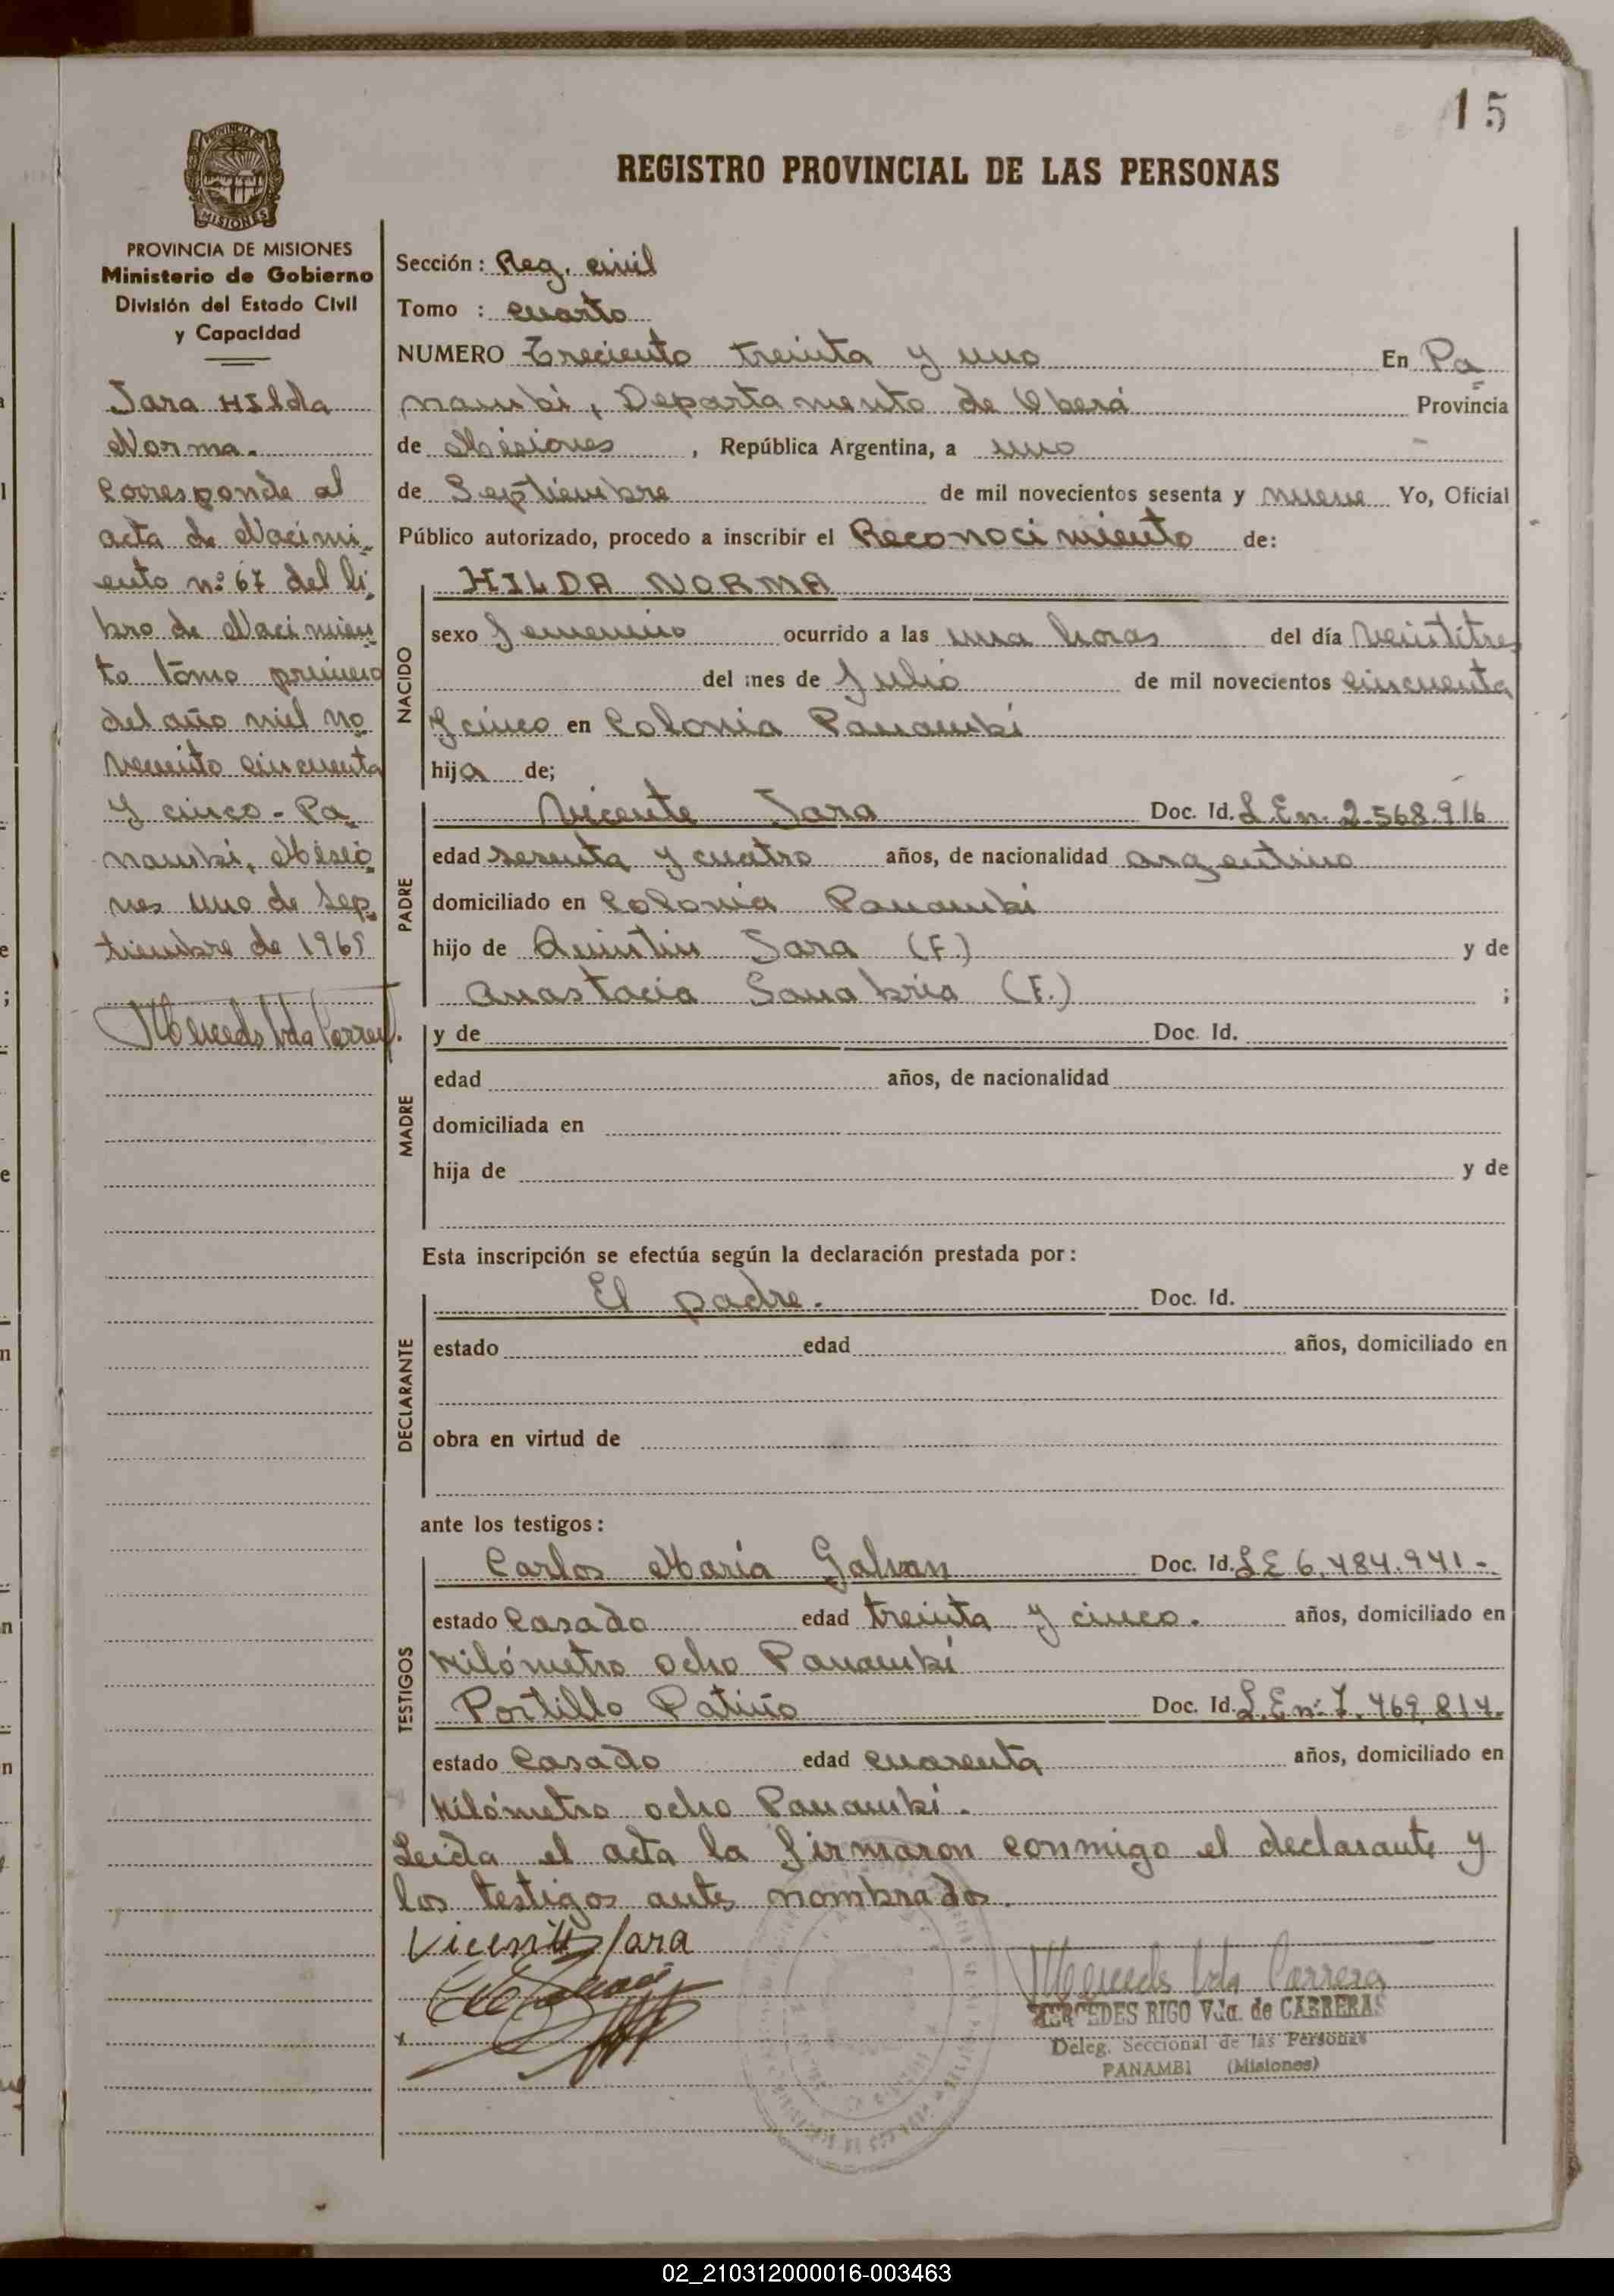 15
PROVINCIA DE
MISIONES
REGISTRO PROVINCIAL DE LAS PERSONAS
PROVINCIA DE MISIONES
Ministerio de Gobierno
División del Estado Civil
y Capacidad
Jara HILda
Norma.
Corresponde al
acta de Nacimi-
ento nº 67 del li-
bro de Nacimien-
to tomo primero
del año mil no-
veciento cincuenta
y cinco - Pa-
nambí, Misio-
nes uno de Sep-
tiembre de 1969
Mercedes Vda Carrera
Sección: Reg. civil
Tomo : Cuarto
NUMERO Treciento treinta y uno En Pa-
nambi, Departamento de Oberá Provincia
de Misiones , República Argentina, a uno
de Septiembre de mil novecientos sesenta y nueve Yo, Oficial
Público autorizado, procedo a inscribir el Reconocimiento de:
NACIDO
HILDA NORMA
sexo femenino ocurrido a las una horas del día veintitres
del mes de Julio de mil novecientos cincuenta
y cinco en Colonia Panambí
hija de;
PADRE
Vicente Jara Doc. Id. L.En. 2.568.916
edad sesenta y cuatro años, de nacionalidad argentino
domiciliado en Colonia Panambí
hijo de Quintin Jara (F.) y de
Anastacia Sanabria (F.) ;
MADRE
y de Doc. Id.
edad años, de nacionalidad
domiciliada en
hija de y de
Esta inscripción se efectúa según la declaración prestada por:
DECLARANTE
El padre. Doc. Id.
estado edad años, domiciliado en
obra en virtud de
ante los testigos:
TESTIGOS
Carlos María Galvan Doc. Id. LE 6.484.941-
estado Casado edad treinta y cinco. años, domiciliado en
Kilómetro ocho Panambí
Portillo Patiño Doc. Id. L.E nº 7.469.814.
estado Casado edad cuarenta años, domiciliado en
Kilómetro ocho Panambí.
Leida el acta la firmaron conmigo el declarante y
los testigos antes nombrados.
Vicente Jara
Mercedes Vda Carrera
MERCEDES RIGO Vda. de CABRERAS
Deleg. Seccional de las Personas
PANAMBI (Misiones)
02_210312000016-003463